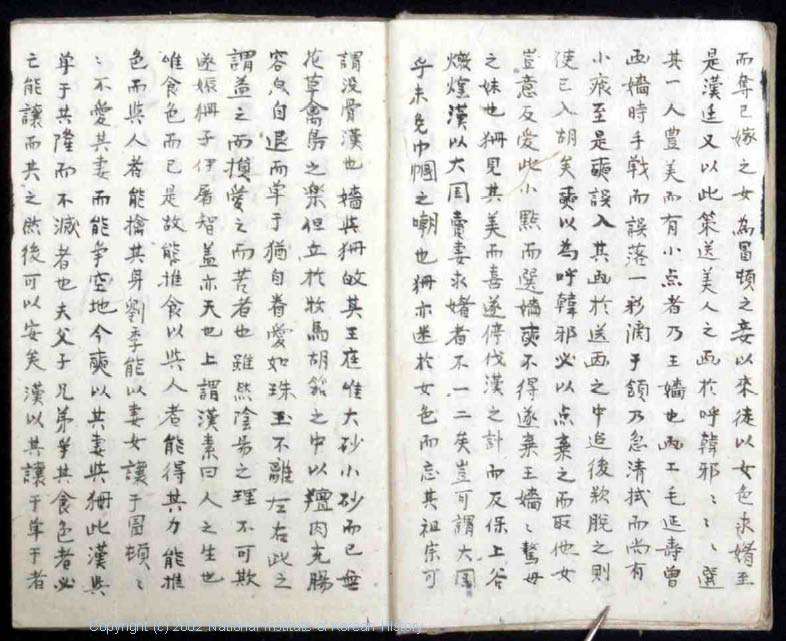 而奪已嫁之女為冒頓之妾以來徒以女色求婚至
是漢廷又以此策送美人之画於呼韓邪〻〻〻選
其一人豊美而有小点者乃王嬙也画工毛延壽曾
画嬙時手戦而誤落一彩滴于額乃急清拭而尚有
小痕至是奭誤入其画於送画之中追後欲脱之則
使已入胡矣奭以為呼韓邪必以点棄之而取他女
豈意反愛此小點而選嬙奭不得遂棄王嬙〻鶩母
之妹也狦見其美而喜遂停伐漢之計而反保上谷
燉煌漢以大国賣妻求婚者不一二矣豈可謂大国
乎未免巾幗之嘲也狦亦迷於女色而忘其祖宗可
謂没骨漢也嬙與狦故其王庭惟大砂小砂而已無
花草禽鳥之樂但立於牧馬胡笳之中以羶肉充腸
容色自退而单于猶自眷愛如珠玉不離左右此之
謂益之而損愛之而苦者也雖然陰陽之理不可欺
遂娠狦子伊屠智盖亦天也上謂漢素曰人之生也
唯食色而已是故能推食以與人者能得其力能推
色而與人者能擒其身劉季能以妻女讓于冒頓〻
〻不愛其妻而能争空地今奭以其妻與狦此漢與
单于共隆而不滅者也夫父子兄弟爭其食色者必
亡能讓而共之然後可以安矣漢以其讓于单于者
Copyright (c) 2002 National Institute of Korean History